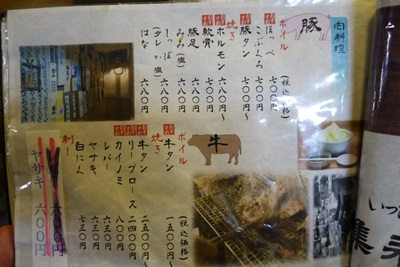 肉料理
豚
ボイル
(税込価格)
ほっぺ 七〇〇円
こぶくろ 七〇〇円
豚タン 七〇〇円〜
焼き
ホルモン 六八〇円〜
軟骨 六八〇円
豚足 六八〇円
みみ(塩) 六八〇円
しっぽ(タレor塩) 六八〇円
はな 六八〇円
牛
ボイル
(税込価格)
牛タン 一五〇〇円〜
焼き
牛タン 二五〇〇円〜
リーブロース 二四〇〇円
カイノミ 八〇〇円
レバー 六三〇円
ヤサキ 六三〇円
白にく 七三〇円〜
刺し
六〇〇円
ヤサキ 六〇〇円
いつ
集